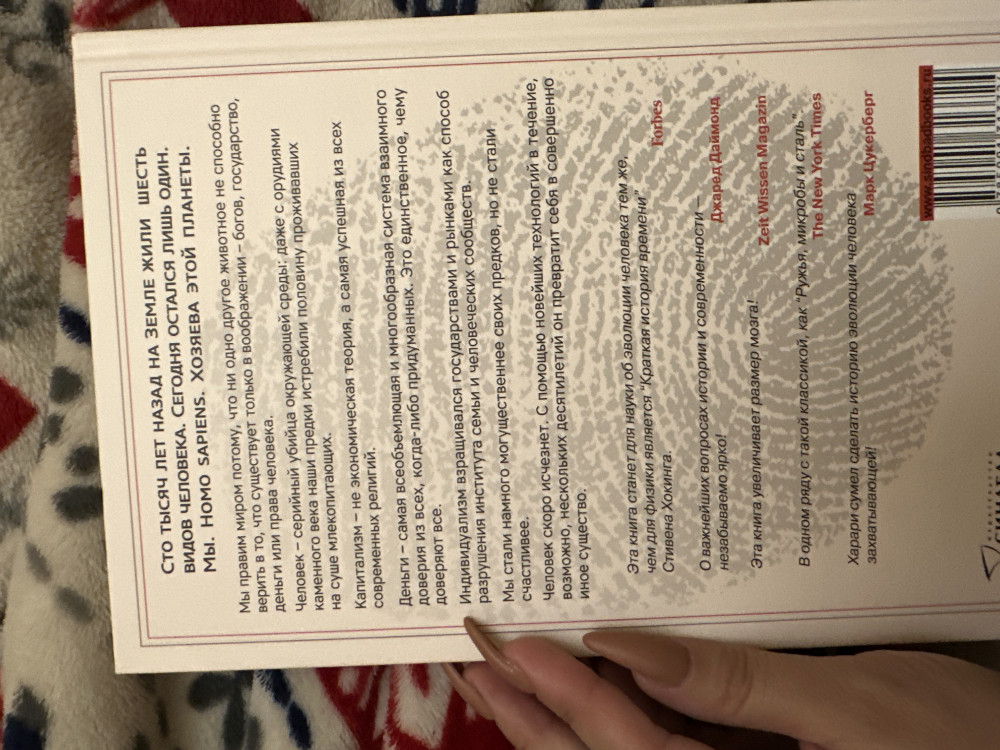 СТО ТЫСЯЧ ЛЕТ НАЗАД НА ЗЕМЛЕ ЖИЛИ ШЕСТЬ
ВИДОВ ЧЕЛОВЕКА. СЕГОДНЯ ОСТАЛСЯ ЛИШЬ ОДИН.
МЫ. HOMO SAPIENS. ХОЗЯЕВА ЭТОЙ ПЛАНЕТЫ.
Мы правим миром потому, что ни одно другое животное не способно
верить в то, что существует только в воображении – богов, государство,
деньги или права человека.
Человек – серийный убийца окружающей среды: даже с орудиями
каменного века наши предки истребили половину проживавших
на суше млекопитающих.
Капитализм – не экономическая теория, а самая успешная из всех
современных религий.
Деньги – самая всеобъемлющая и многообразная система взаимного
доверия из всех, когда-либо придуманных. Это единственное, чему
доверяют все.
Индивидуализм взращивался государствами и рынками как способ
разрушения института семьи и человеческих сообществ.
Мы стали намного могущественнее своих предков, но не стали
счастливее.
Человек скоро исчезнет. С помощью новейших технологий в течение,
возможно, нескольких десятилетий он превратит себя в совершенно
иное существо.
Эта книга станет для науки об эволюции человека тем же,
чем для физики является "Краткая история времени"
Стивена Хокинга.
Forbes
О важнейших вопросах истории и современности –
незабываемо ярко!
Джаред Даймонд
Эта книга увеличивает размер мозга!
Zeit Wissen Magazin
В одном ряду с такой классикой, как "Ружья, микробы и сталь".
The New York Times
Харари сумел сделать историю эволюции человека
захватывающей!
Марк Цукерберг
www.sindbadbooks.ru